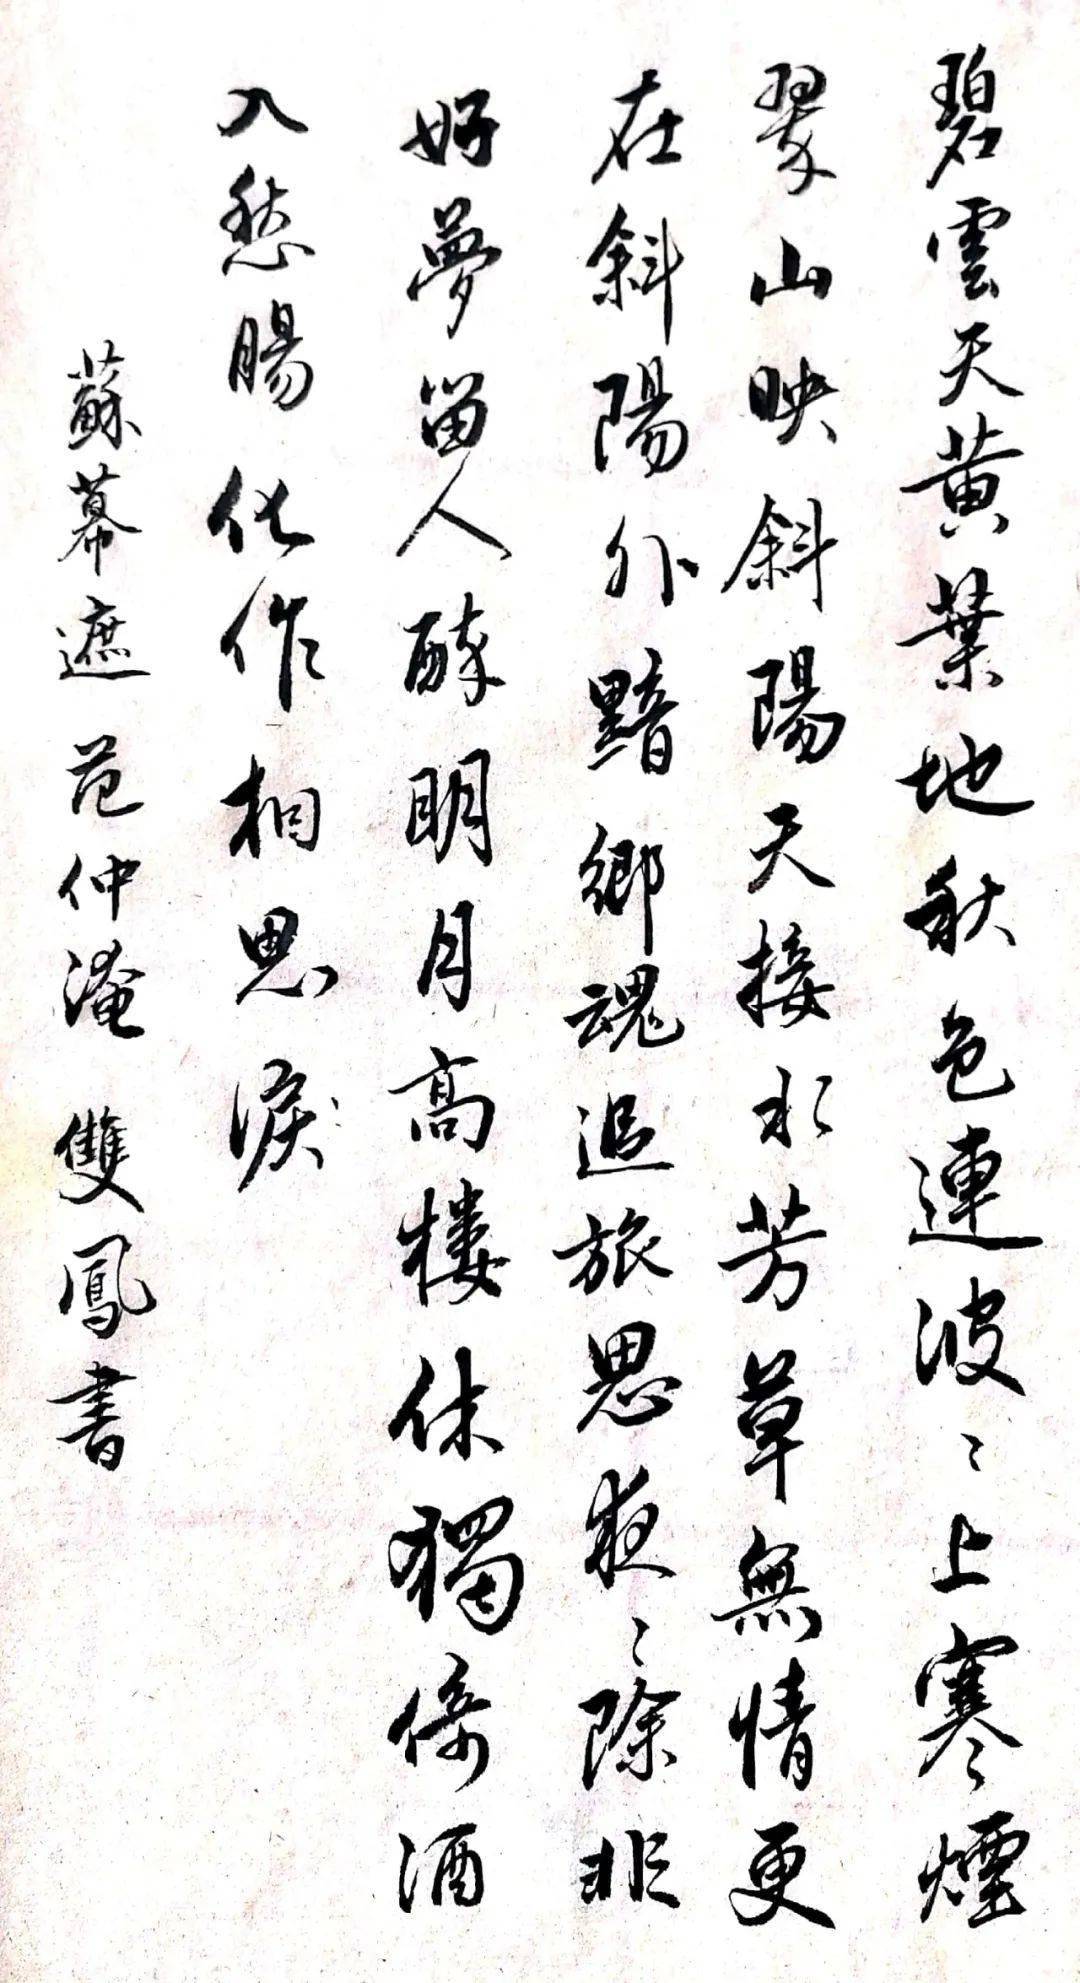 碧雲天黄葉地秋色連波〻上寒煙
翠山映斜陽天接水芳草無情更
在斜陽外黯鄉魂追旅思夜〻除非
好夢留人醉明月高樓休獨倚酒
入愁腸化作相思淚
蘇幕遮 范仲淹 雙鳳書